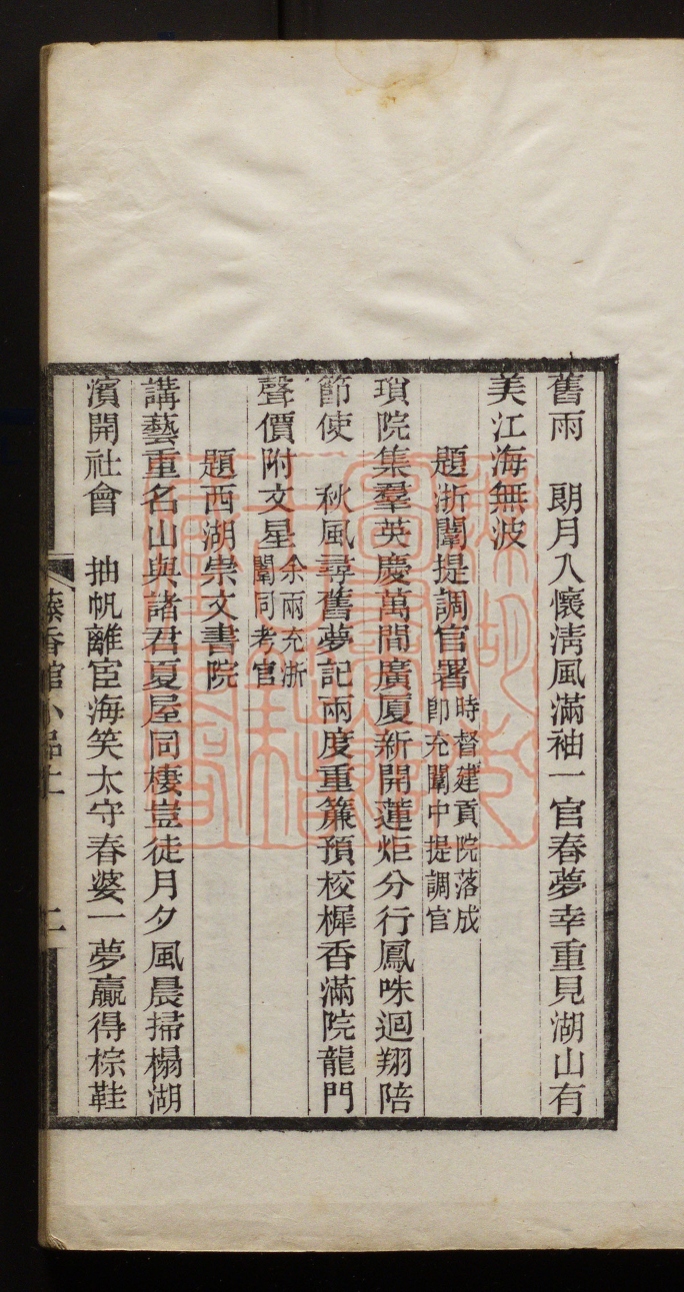 舊雨　朗月入懷淸風滿袖一官春夢幸重見湖山有
美江海無波
題浙闈提調官署時督建貢院落成卽充闈中提調官
瑣院集羣英慶萬間廣厦新開蓮炬分行鳳咮迴翔陪
節使　秋風尋舊夢記兩度重簾預校樨香滿院龍門
聲價附文星余兩充浙闈同考官
題西湖崇文書院
講藝重名山與諸君夏屋同棲豈徒月夕風晨掃榻湖
濱開社會　抽帆離宦海笑太守春婆一夢贏得棕鞋
香館小品上
二